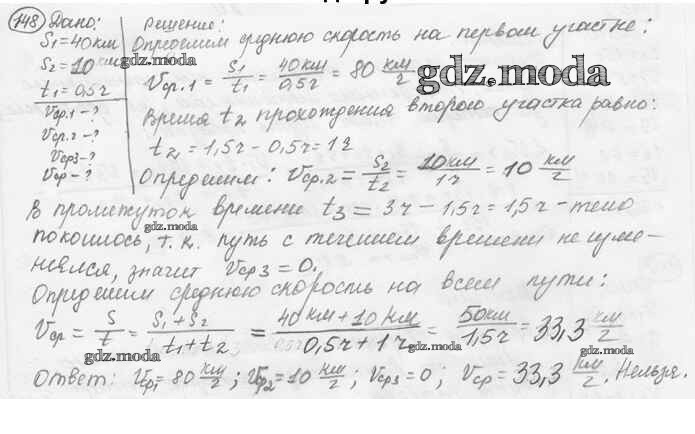 148 Дано:
S₁=40км
S₂=10км
t₁=0,5ч
Vср.1-?
Vср.2-?
Vср3-?
Vср-?
Решение:
Определим среднюю скорость на первом участке:
Vср.1 = S₁/t₁ = 40км/0,5ч = 80 км/ч
Время t₂ прохождения второго участка равно:
t₂ = 1,5ч - 0,5ч = 1ч
Определим: Vср.2 = S₂/t₂ = 10км/1ч = 10 км/ч
В промежуток времени t₃ = 3ч - 1,5ч = 1,5ч - тело
покоилось, т.к. путь с течением времени не изме-
нялся, значит Vср3 = 0.
Определим среднюю скорость на всем пути:
Vср = S/t = S₁+S₂/t₁+t₂ = 40км+10км/0,5ч+1ч = 50км/1,5ч = 33,3 км/ч
Ответ: Vср1 = 80 км/ч; Vср2 = 10 км/ч; Vср3 = 0; Vср = 33,3 км/ч. Нельзя.
gdz.moda
gdz.moda
gdz.moda
gdz.moda
gdz.moda
gdz.moda